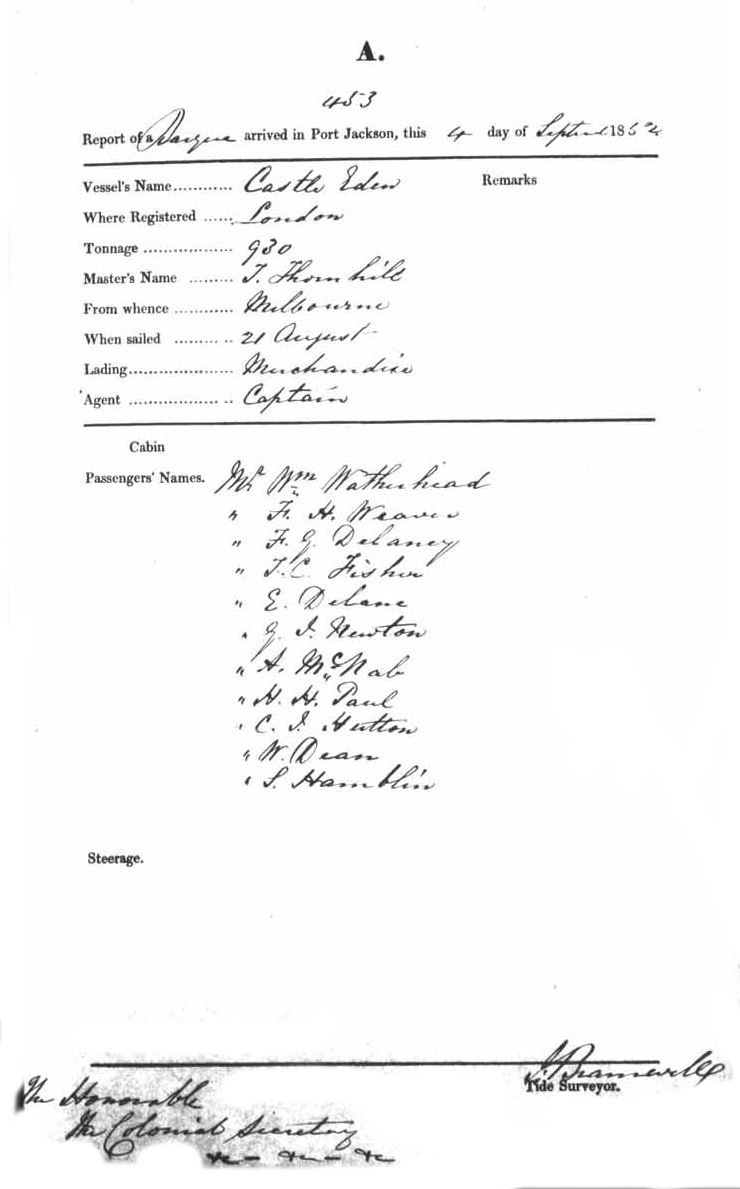 A.
453
Report of a Barque arrived in Port Jackson, this 4 day of Septem 1852
Vessel's Name............ Castle Eden Remarks
Where Registered ...... London
Tonnage ................. 930
Master's Name ......... T. Thornhill
From whence ............ Melbourne
When sailed ......... .. 21 August
Lading..................... Merchandise
Agent .................. .. Captain
Cabin
Passengers' Names. Mr Wm Watherhead
" F. H. Weaver
" F. G. Delaney
" T. C. Fisher
" E. Delane
" G. I. Newton
" A. McNab
" H. H. Paul
" C. I. Hutton
" W. Dean
" S. Hamblin
Steerage.
J. Bramwell
Tide Surveyor.
The Honorable
The Colonial Secretary
&c - &c - &c